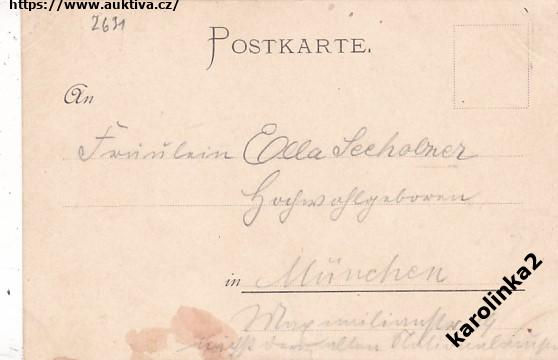 https://www.auktiva.cz/
2631
POSTKARTE.
An
Fräulein Ella Seeholzer
Hochwohlgeboren
in München
Maximilianstr.
alten
karolinka2